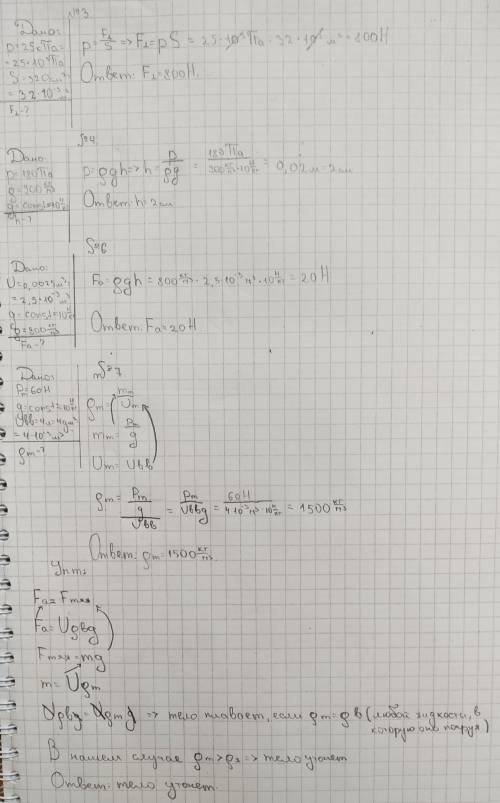 №3
Дано:
p=25кПа=
=25·10³Па
S=320см²=
=32·10⁻³м²
F₁-?
p=F₁/S=>F₁=pS=25·10³Па·32·10⁻³м²=800Н
Ответ: F₁=800Н.
№4
Дано:
p=180Па
g=const=10Н/кг
h-?
p=ρgh=>h=p/ρg=180Па/900кг/м³·10Н/кг=0,02м=2см
Ответ: h=2см
№6
Дано:
V=0,0025м³=
=2,5·10⁻³м³
g=const=10Н/кг
ρ=800кг/м³
Fa-?
Fa=ρgh=800кг/м³·2,5·10⁻³м³·10Н/кг=20Н
Ответ: Fa=20Н
№7
Дано:
Pт=60Н
g=const=10Н/кг
Vвв=4л=4дм³
=4·10⁻³м³
ρт-?
ρт=mт/Vт
mт=Pт/g
Vт=Vвв
ρт=Pт/g/Vвв=Pт/Vввg=60Н/4·10⁻³м³·10Н/кг=1500кг/м³
Ответ: ρт=1500кг/м³.
Fa=Fтяж
Fa=Vρвg
Fтяж=mg
m=Vρт
Vρвg=Vρтg=>тело плавает, если ρт=ρв(любой жидкости, в
которую оно погруж)
В нашем случае ρт>ρж=>тело утонет
Ответ: тело утонет.